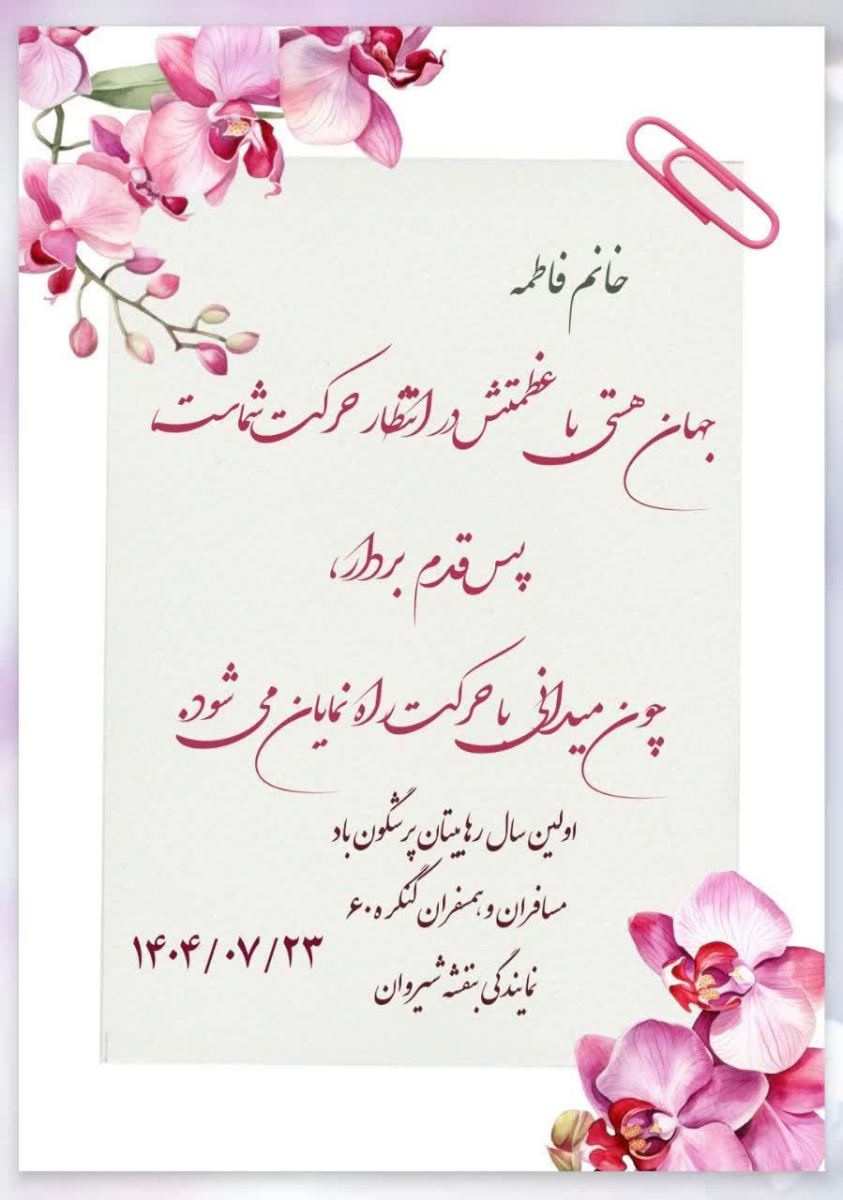 خانم فاطمه
جهان هستی با عظمتش در انتظار حرکت شماست،
پس قدم بردار،
چون میدانی با حرکت راه نمایان می شود.
اولین سال رهاییتان پرشگون باد
مسافران و همسفران کنگره ۶۰
۱۴۰۴/۰۷/۲۳
نمایندگی بنفشه شیروان